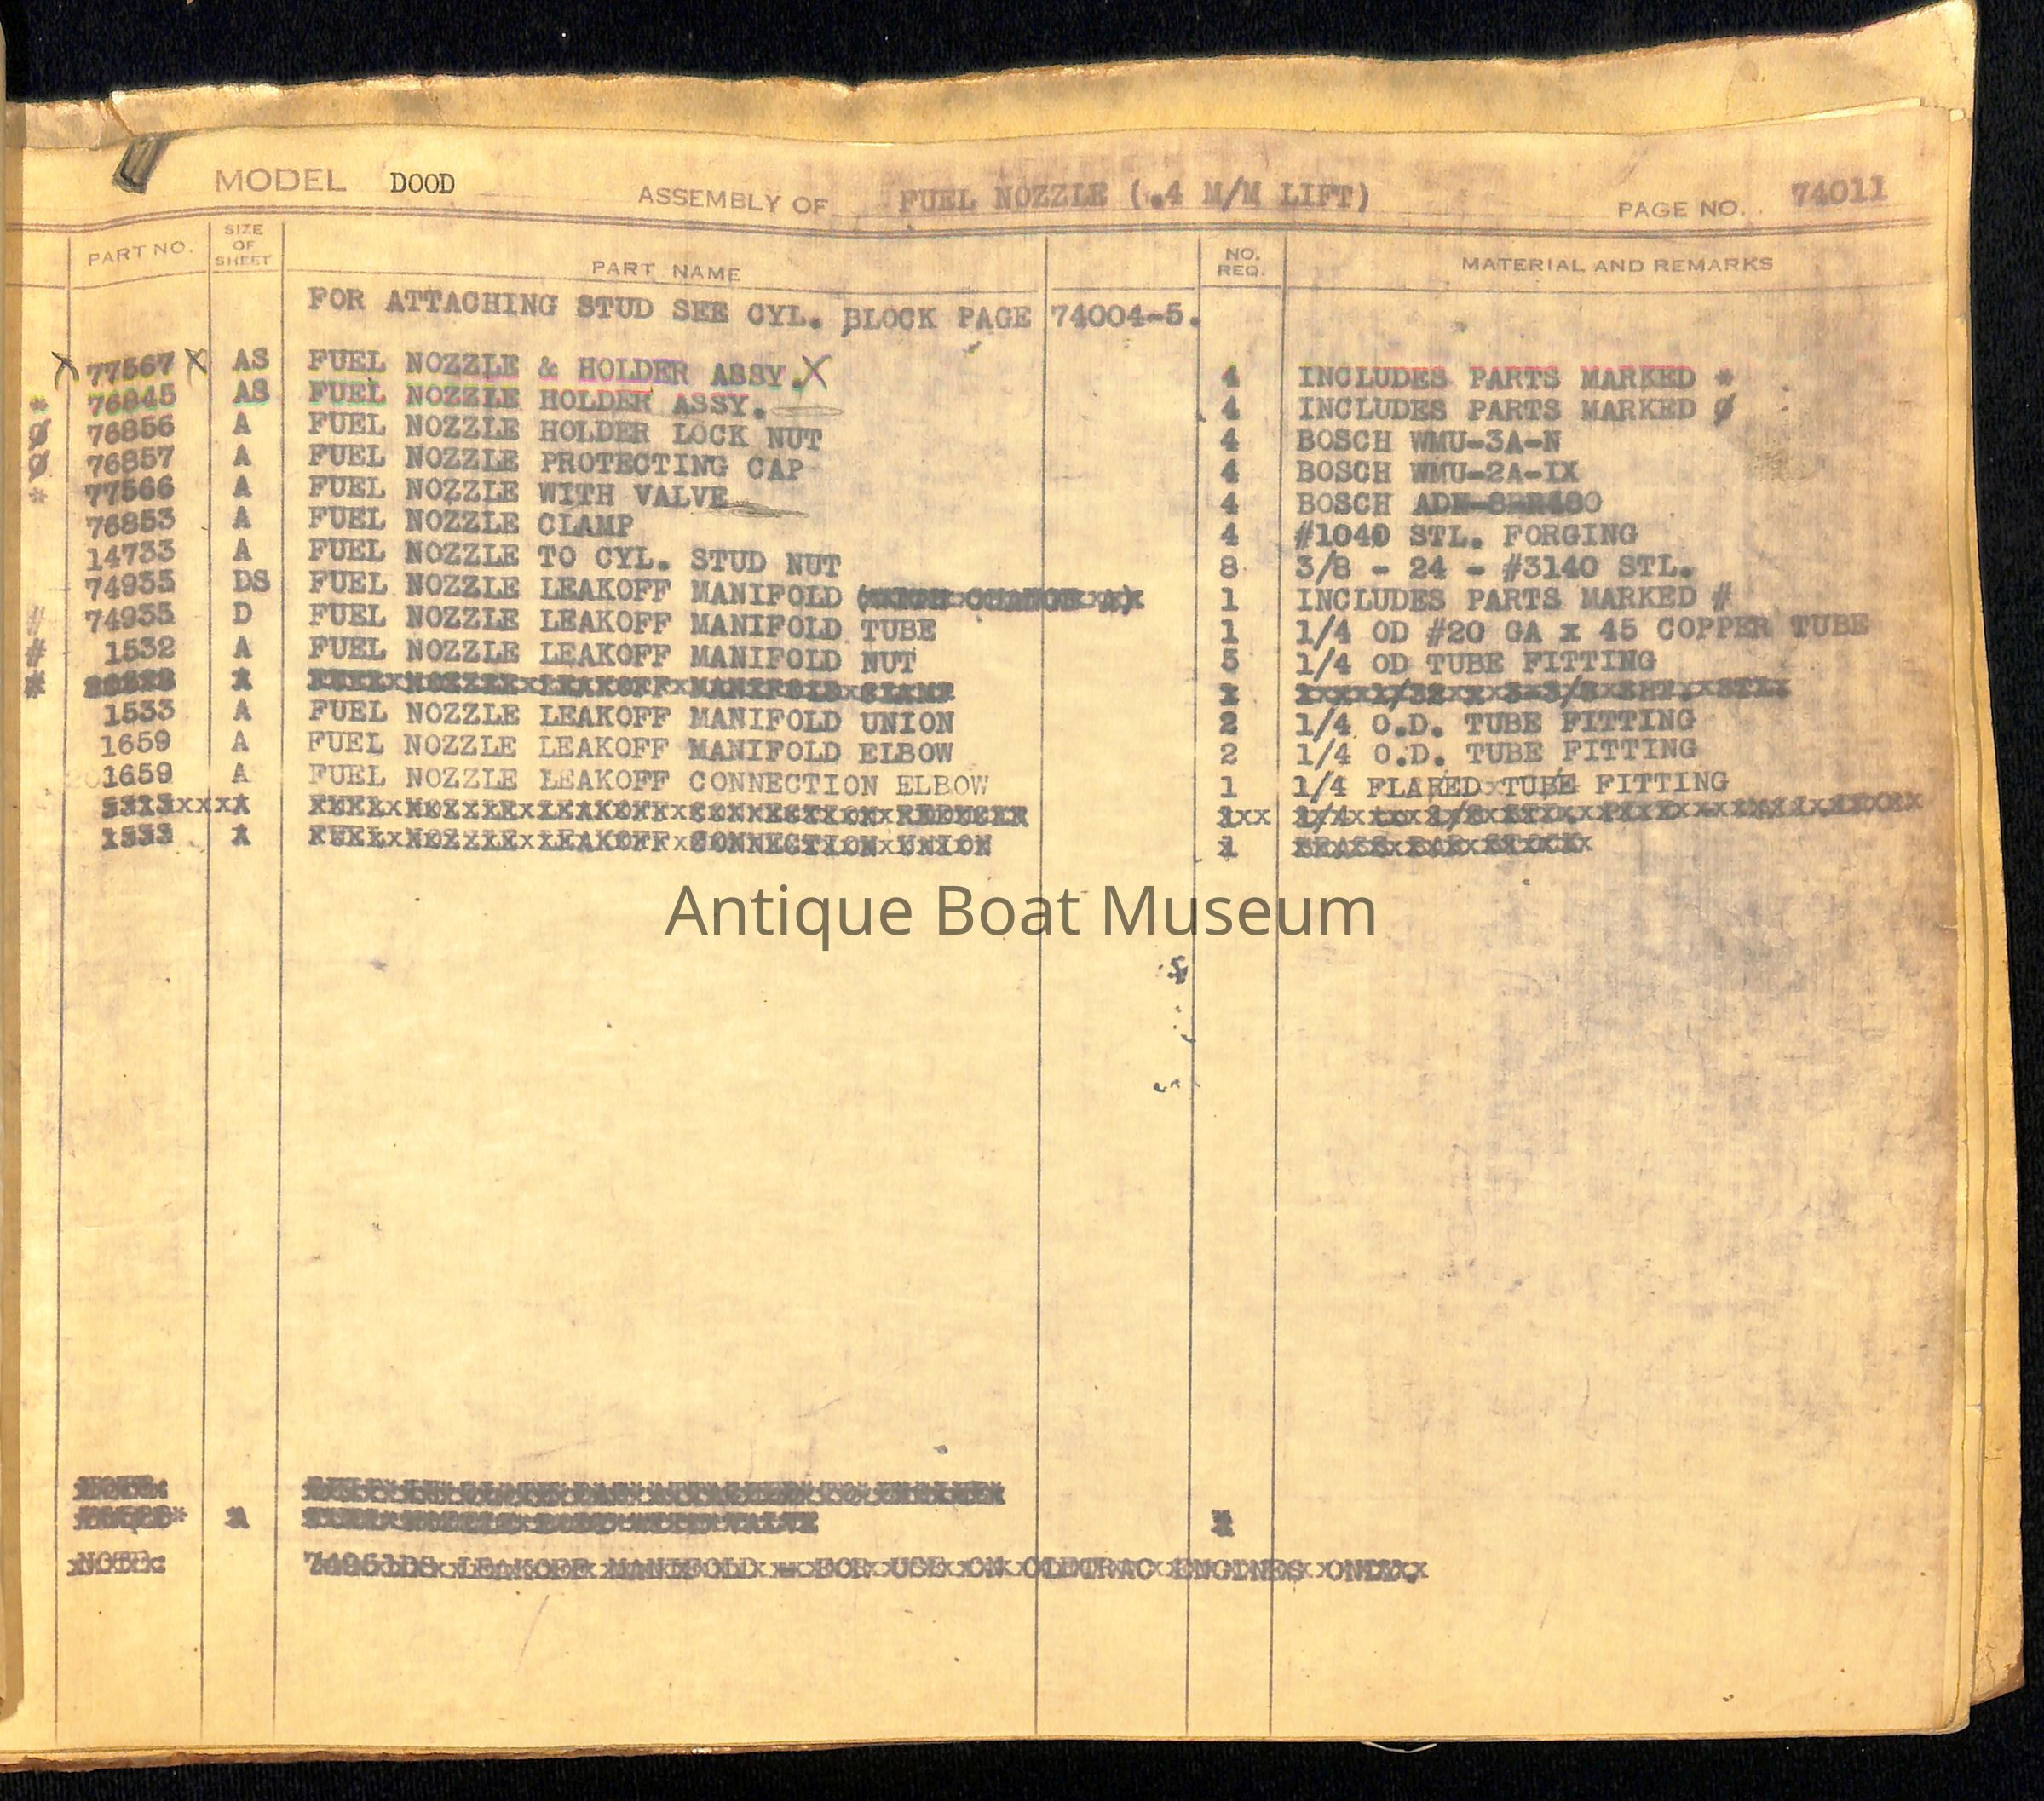 MODEL DOOD ASSEMBLY OF FUEL NOZZLE (.4 M/M LIFT) PAGE NO. 74011
PART NO. SIZE OF SHEET PART NAME NO. REQ. MATERIAL AND REMARKS
FOR ATTACHING STUD SEE CYL. BLOCK PAGE 74004-5.
X 77567 X AS FUEL NOZZLE & HOLDER ASSY. X 4 INCLUDES PARTS MARKED *
* 76845 AS FUEL NOZZLE HOLDER ASSY. 4 INCLUDES PARTS MARKED Ø
Ø 76856 A FUEL NOZZLE HOLDER LOCK NUT 4 BOSCH WMU-3A-N
Ø 76857 A FUEL NOZZLE PROTECTING CAP 4 BOSCH WMU-2A-IX
* 77566 A FUEL NOZZLE WITH VALVE 4 BOSCH
76853 A FUEL NOZZLE CLAMP 4 #1040 STL. FORGING
14733 A FUEL NOZZLE TO CYL. STUD NUT 8 3/8 - 24 - #3140 STL.
74935 DS FUEL NOZZLE LEAKOFF MANIFOLD 1 INCLUDES PARTS MARKED #
# 74935 D FUEL NOZZLE LEAKOFF MANIFOLD TUBE 1 1/4 OD #20 GA x 45 COPPER TUBE
# 1532 A FUEL NOZZLE LEAKOFF MANIFOLD NUT 5 1/4 OD TUBE FITTING
# A FUEL NOZZLE LEAKOFF MANIFOLD CLAMP 1
1533 A FUEL NOZZLE LEAKOFF MANIFOLD UNION 2 1/4 O.D. TUBE FITTING
1659 A FUEL NOZZLE LEAKOFF MANIFOLD ELBOW 2 1/4 O.D. TUBE FITTING
1659 A FUEL NOZZLE LEAKOFF CONNECTION ELBOW 1 1/4 FLARED TUBE FITTING
A FUEL NOZZLE LEAKOFF CONNECTION REDUCER 1
1533 A FUEL NOZZLE LEAKOFF CONNECTION UNION 1 BRASS BAR STOCK
Antique Boat Museum
NOTE:
A FUEL NOZZLE BODY WITH VALVE
NOTE: LEAKOFF MANIFOLD - FOR USE ON CLETRAC ENGINES ONLY.